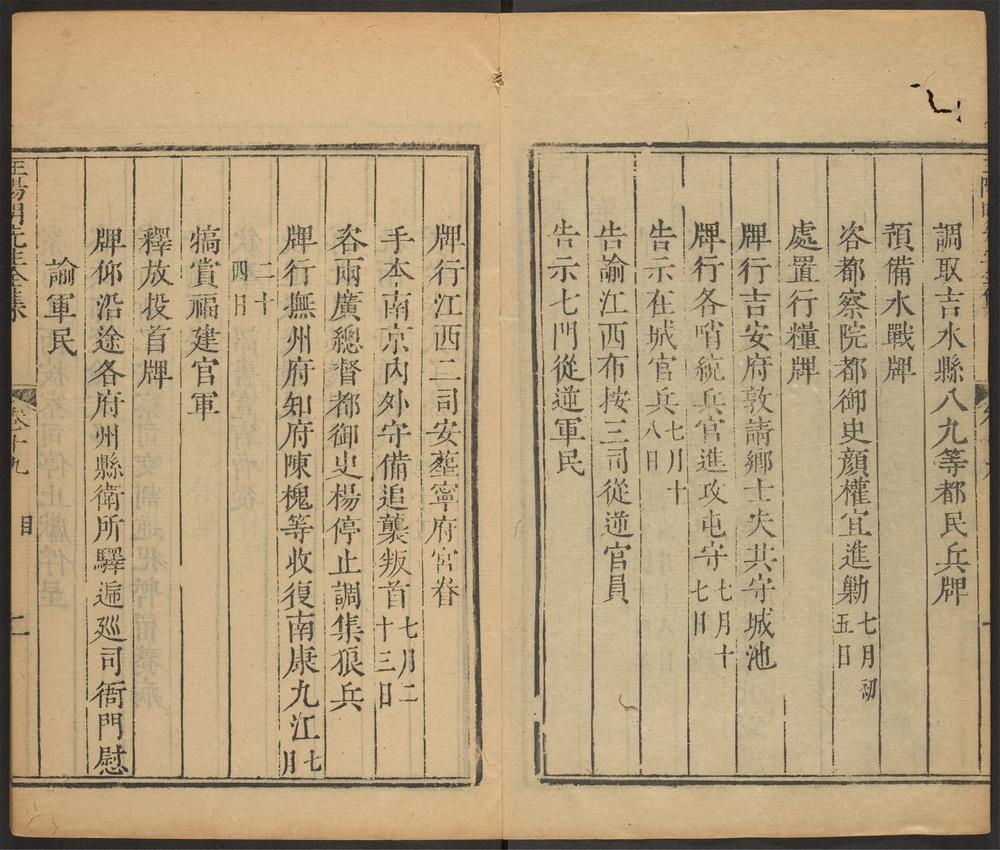 調取吉水縣八九等都民兵牌
預備水戰牌
咨都察院都御史顏權宜進勦七月初五日
處置行糧牌
牌行吉安府敦請鄉士夫共守城池
牌行各哨統兵官進攻屯守七月十七日
告示在城官兵七月十八日
告諭江西布按三司從逆官員
告示七門從逆軍民
牌行江西二司安葬寧府宮眷
手本南京內外守備追襲叛首七月二十三日
咨兩廣總督都御史楊停止調集狼兵
牌行撫州府知府陳槐等收復南康九江七月
二十四日
犒賞福建官軍
釋放投首牌
牌仰沿途各府州縣衛所驛遞廵司衙門慰
諭軍民
王陽明先生全集
卷十九
二